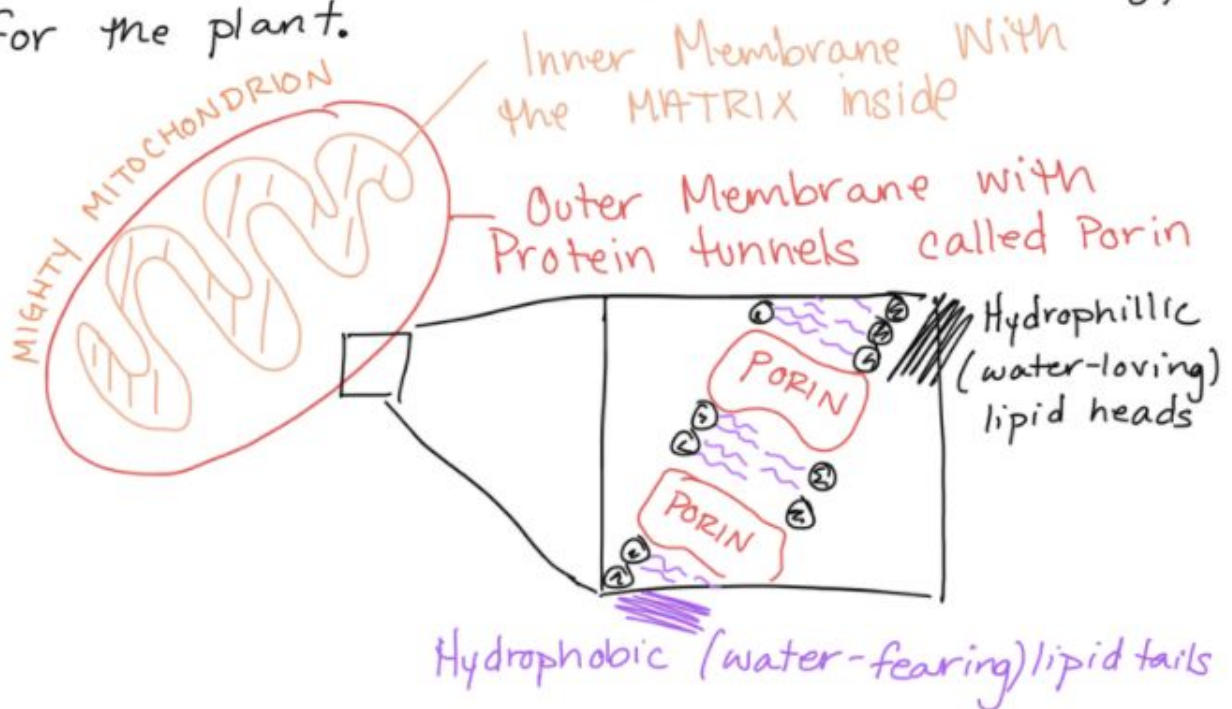 for the plant.
MIGHTY MITOCHONDRION
Inner Membrane With
the MATRIX inside
Outer Membrane with
Protein tunnels called Porin
PORIN
PORIN
Hydrophillic
(water-loving)
lipid heads
Hydrophobic (water-fearing) lipid tails